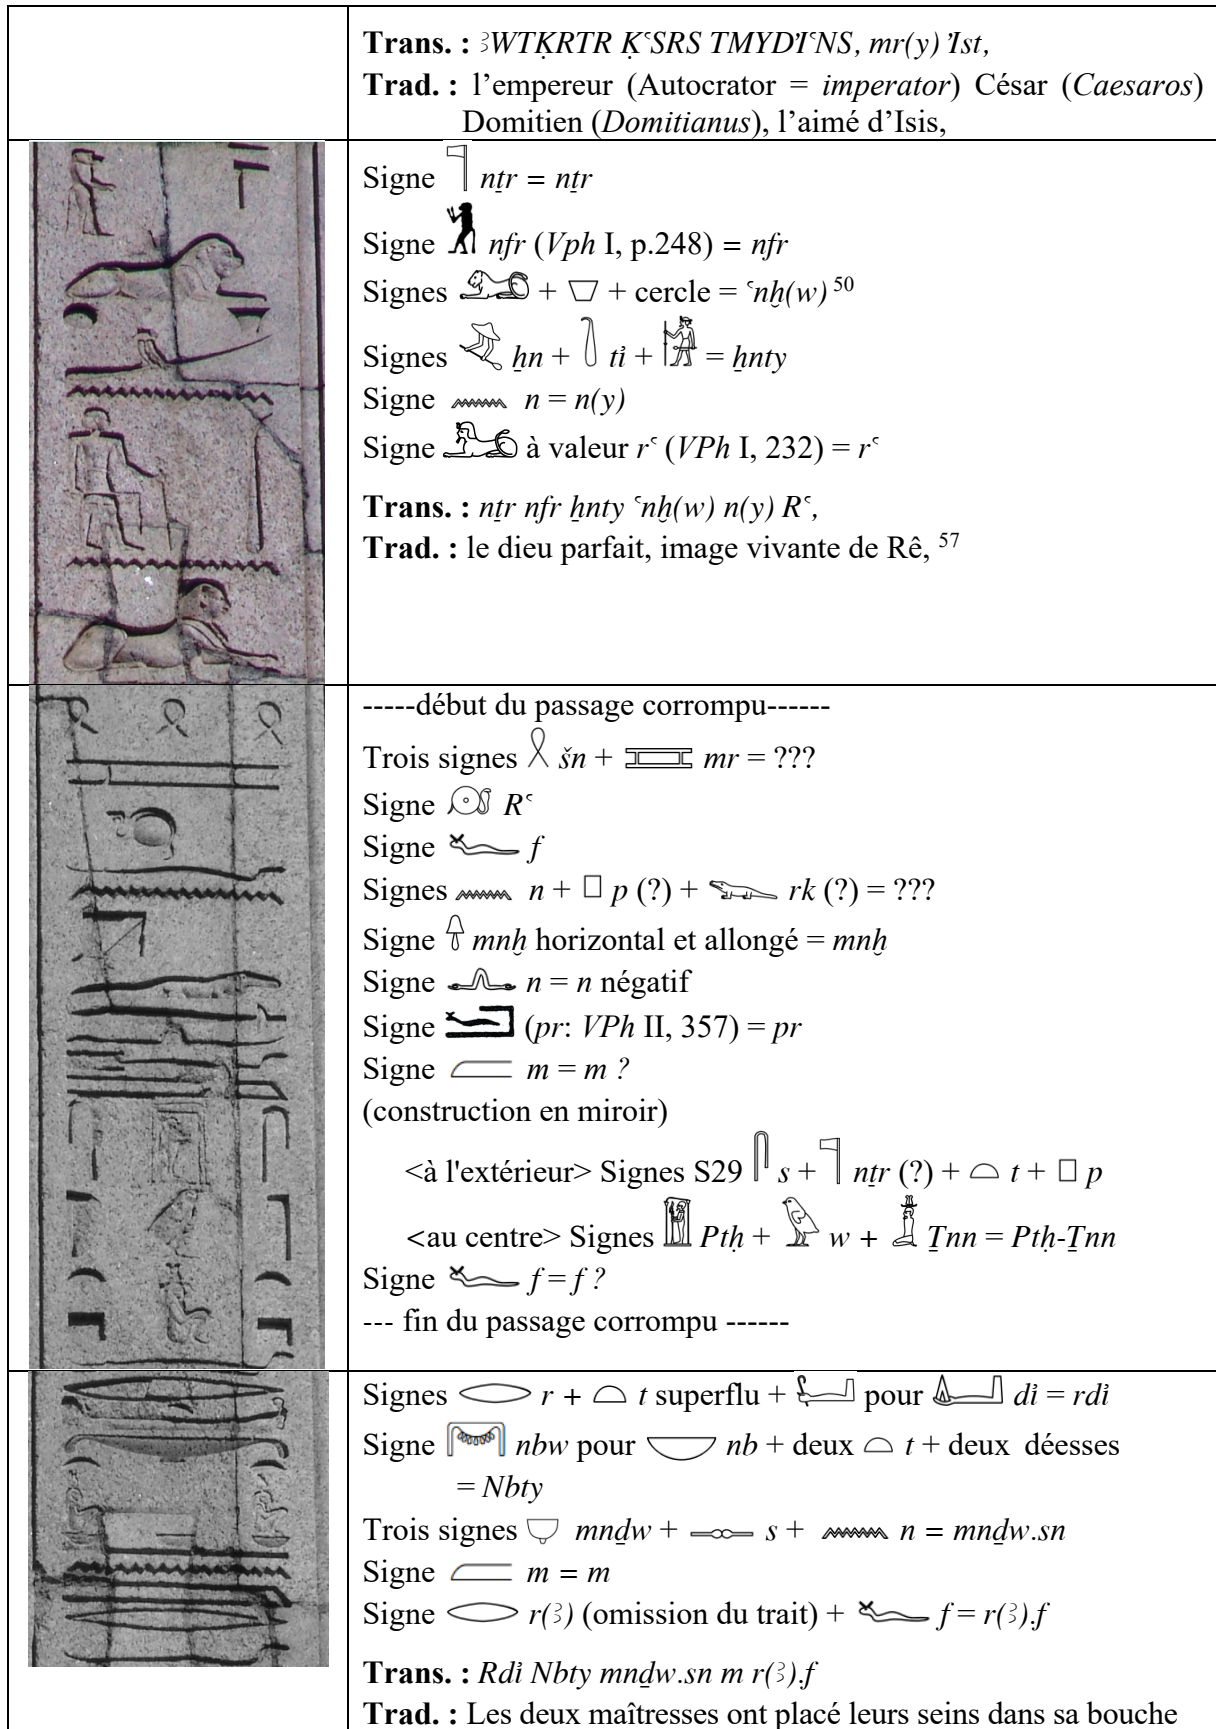 Trans. : ꜣWTḲRTR ḲꜥSRS TMYDꞽꜥNS, mr(y) ꞽIst,
Trad. : l’empereur (Autocrator = imperator) César (Caesaros)
Domitien (Domitianus), l’aimé d’Isis,
Signe 𓊹 nṯr = nṯr
Signe nfr (Vph I, p.248) = nfr
Signes + + cercle = ꜥnḫ(w) 50
Signes ẖn + tỉ + = ẖnty
Signe 𓈖 n = n(y)
Signe à valeur rꜥ (VPh I, 232) = rꜥ
Trans. : nṯr nfr ẖnty ꜥnḫ(w) n(y) Rꜥ,
Trad. : le dieu parfait, image vivante de Rê, 57
-----début du passage corrompu------
Trois signes 𓍶 šn + 𓈘 mr = ???
Signe Rꜥ
Signe 𓆑 f
Signes 𓈖 n + 𓊪 p (?) + 𓆊 rk (?) = ???
Signe mnḫ horizontal et allongé = mnḫ
Signe 𓂜 n = n négatif
Signe (pr: VPh II, 357) = pr
Signe 𓐝 m = m ?
(construction en miroir)
<à l'extérieur> Signes S29 𓋴 s + 𓊹 nṯr (?) + 𓏏 t + 𓊪 p
<au centre> Signes Ptḥ + 𓅱 w + Ṯnn = Ptḥ-Ṯnn
Signe 𓆑 f = f ?
--- fin du passage corrompu ------
Signes 𓂋 r + 𓏏 t superflu + pour 𓂞 dỉ = rdỉ
Signe 𓋞 nbw pour 𓎟 nb + deux 𓏏 t + deux déesses
= Nbty
Trois signes mnḏw + 𓊃 s + 𓈖 n = mnḏw.sn
Signe 𓐝 m = m
Signe 𓂋 r(ꜣ) (omission du trait) + 𓆑 f = r(ꜣ).f
Trans. : Rdỉ Nbty mnḏw.sn m r(ꜣ).f
Trad. : Les deux maîtresses ont placé leurs seins dans sa bouche